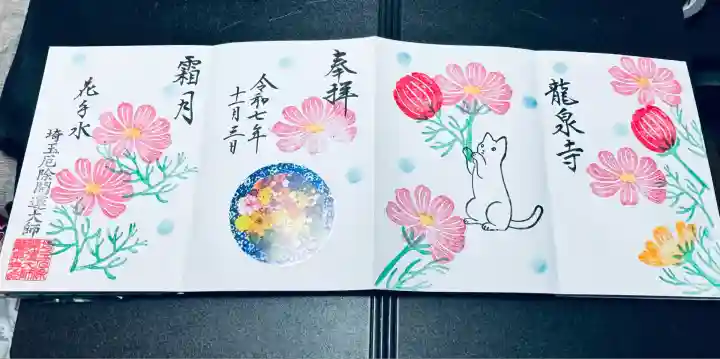 龍泉寺
奉拝
令和七年
十一月三日
霜月
花手水
埼玉厄除開運大師